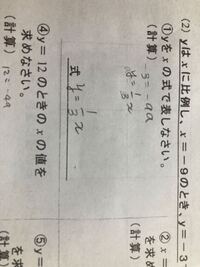 (2) yはxに比例し、x=-9のとき、y=-3
①yをxの式で表しなさい。
(計算)
-3=-9a
y=1/3x
式 y=1/3x
②x=
を求め
(計算)
④y=12のときのxの値を
求めなさい。
(計算)
12=-9a
⑤y=
を求
(計